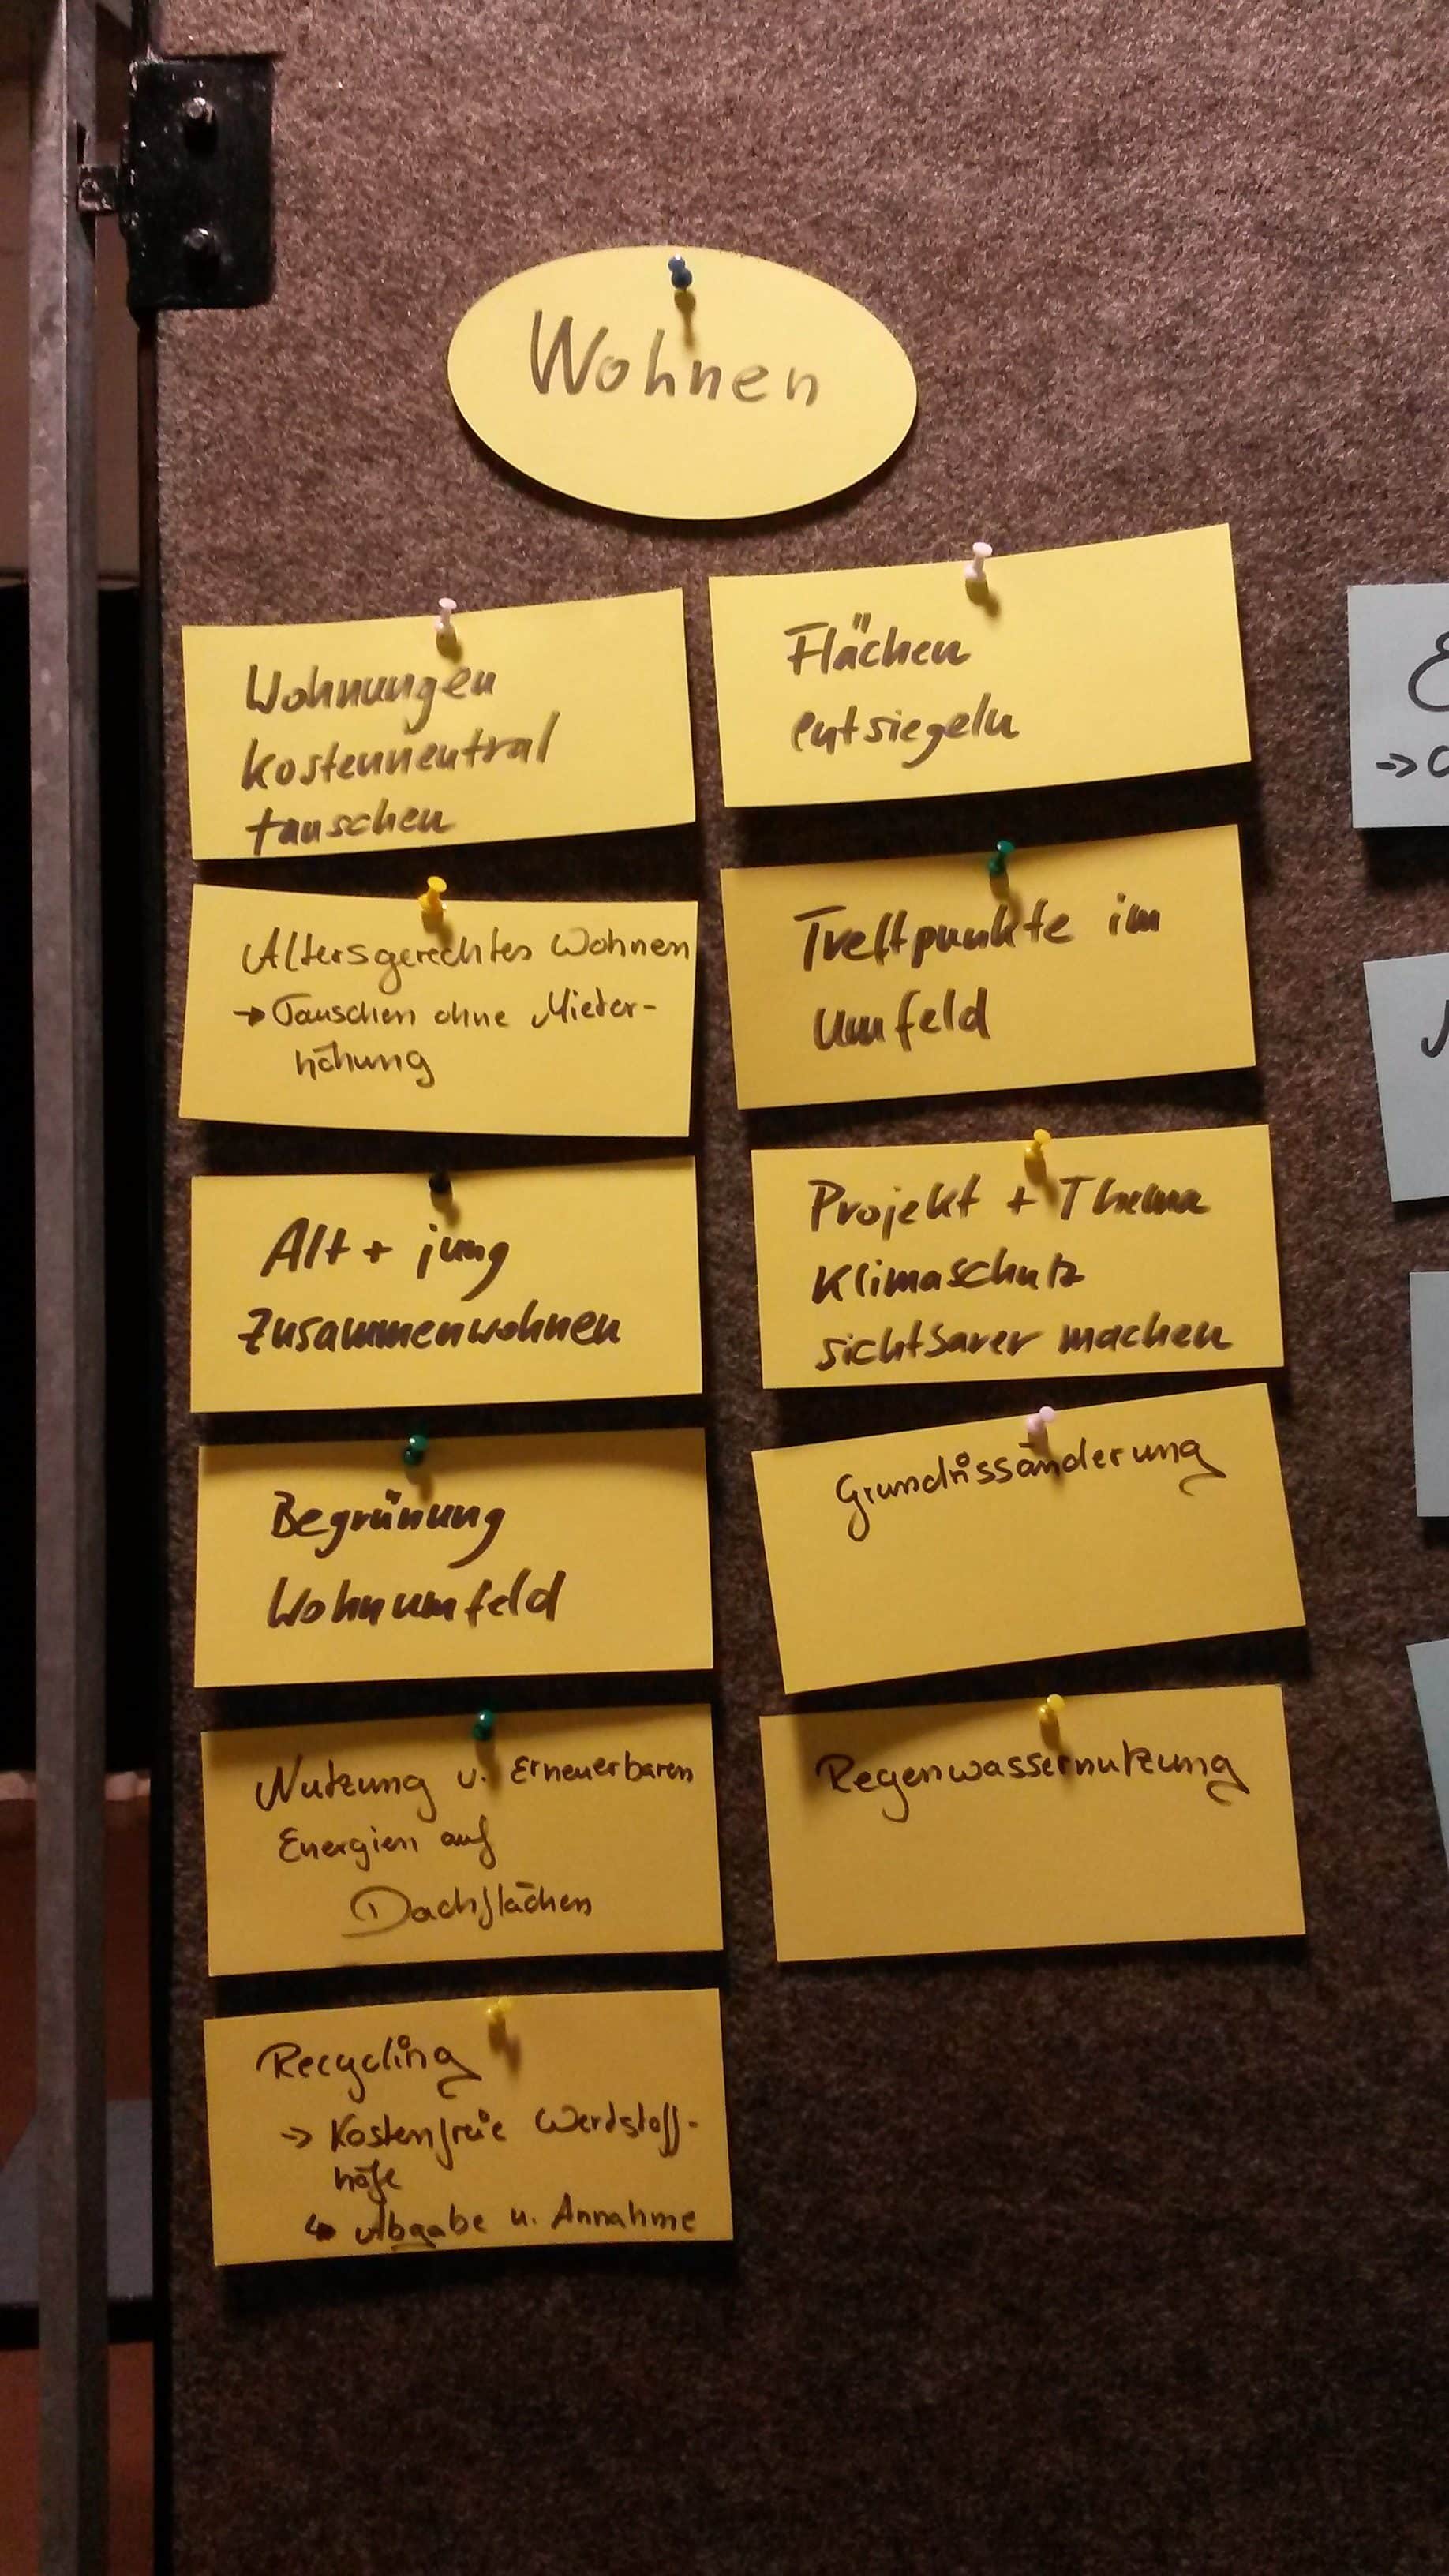 Wohnen
Wohnungen
kostenneutral
tauschen
Altersgerechtes Wohnen
→ Tauschen ohne Mieter-
höhung
Alt + jung
zusammenwohnen
Begrünung
Wohnumfeld
Nutzung v. Erneuerbaren
Energien auf
Dachflächen
Recycling
→ Kostenfreie Wertstoff-
höfe
↳ Abgabe u. Annahme
Flächen
entsiegeln
Treffpunkte im
Umfeld
Projekt + Thema
Klimaschutz
sichtbarer machen
Grundrissänderung
Regenwassernutzung